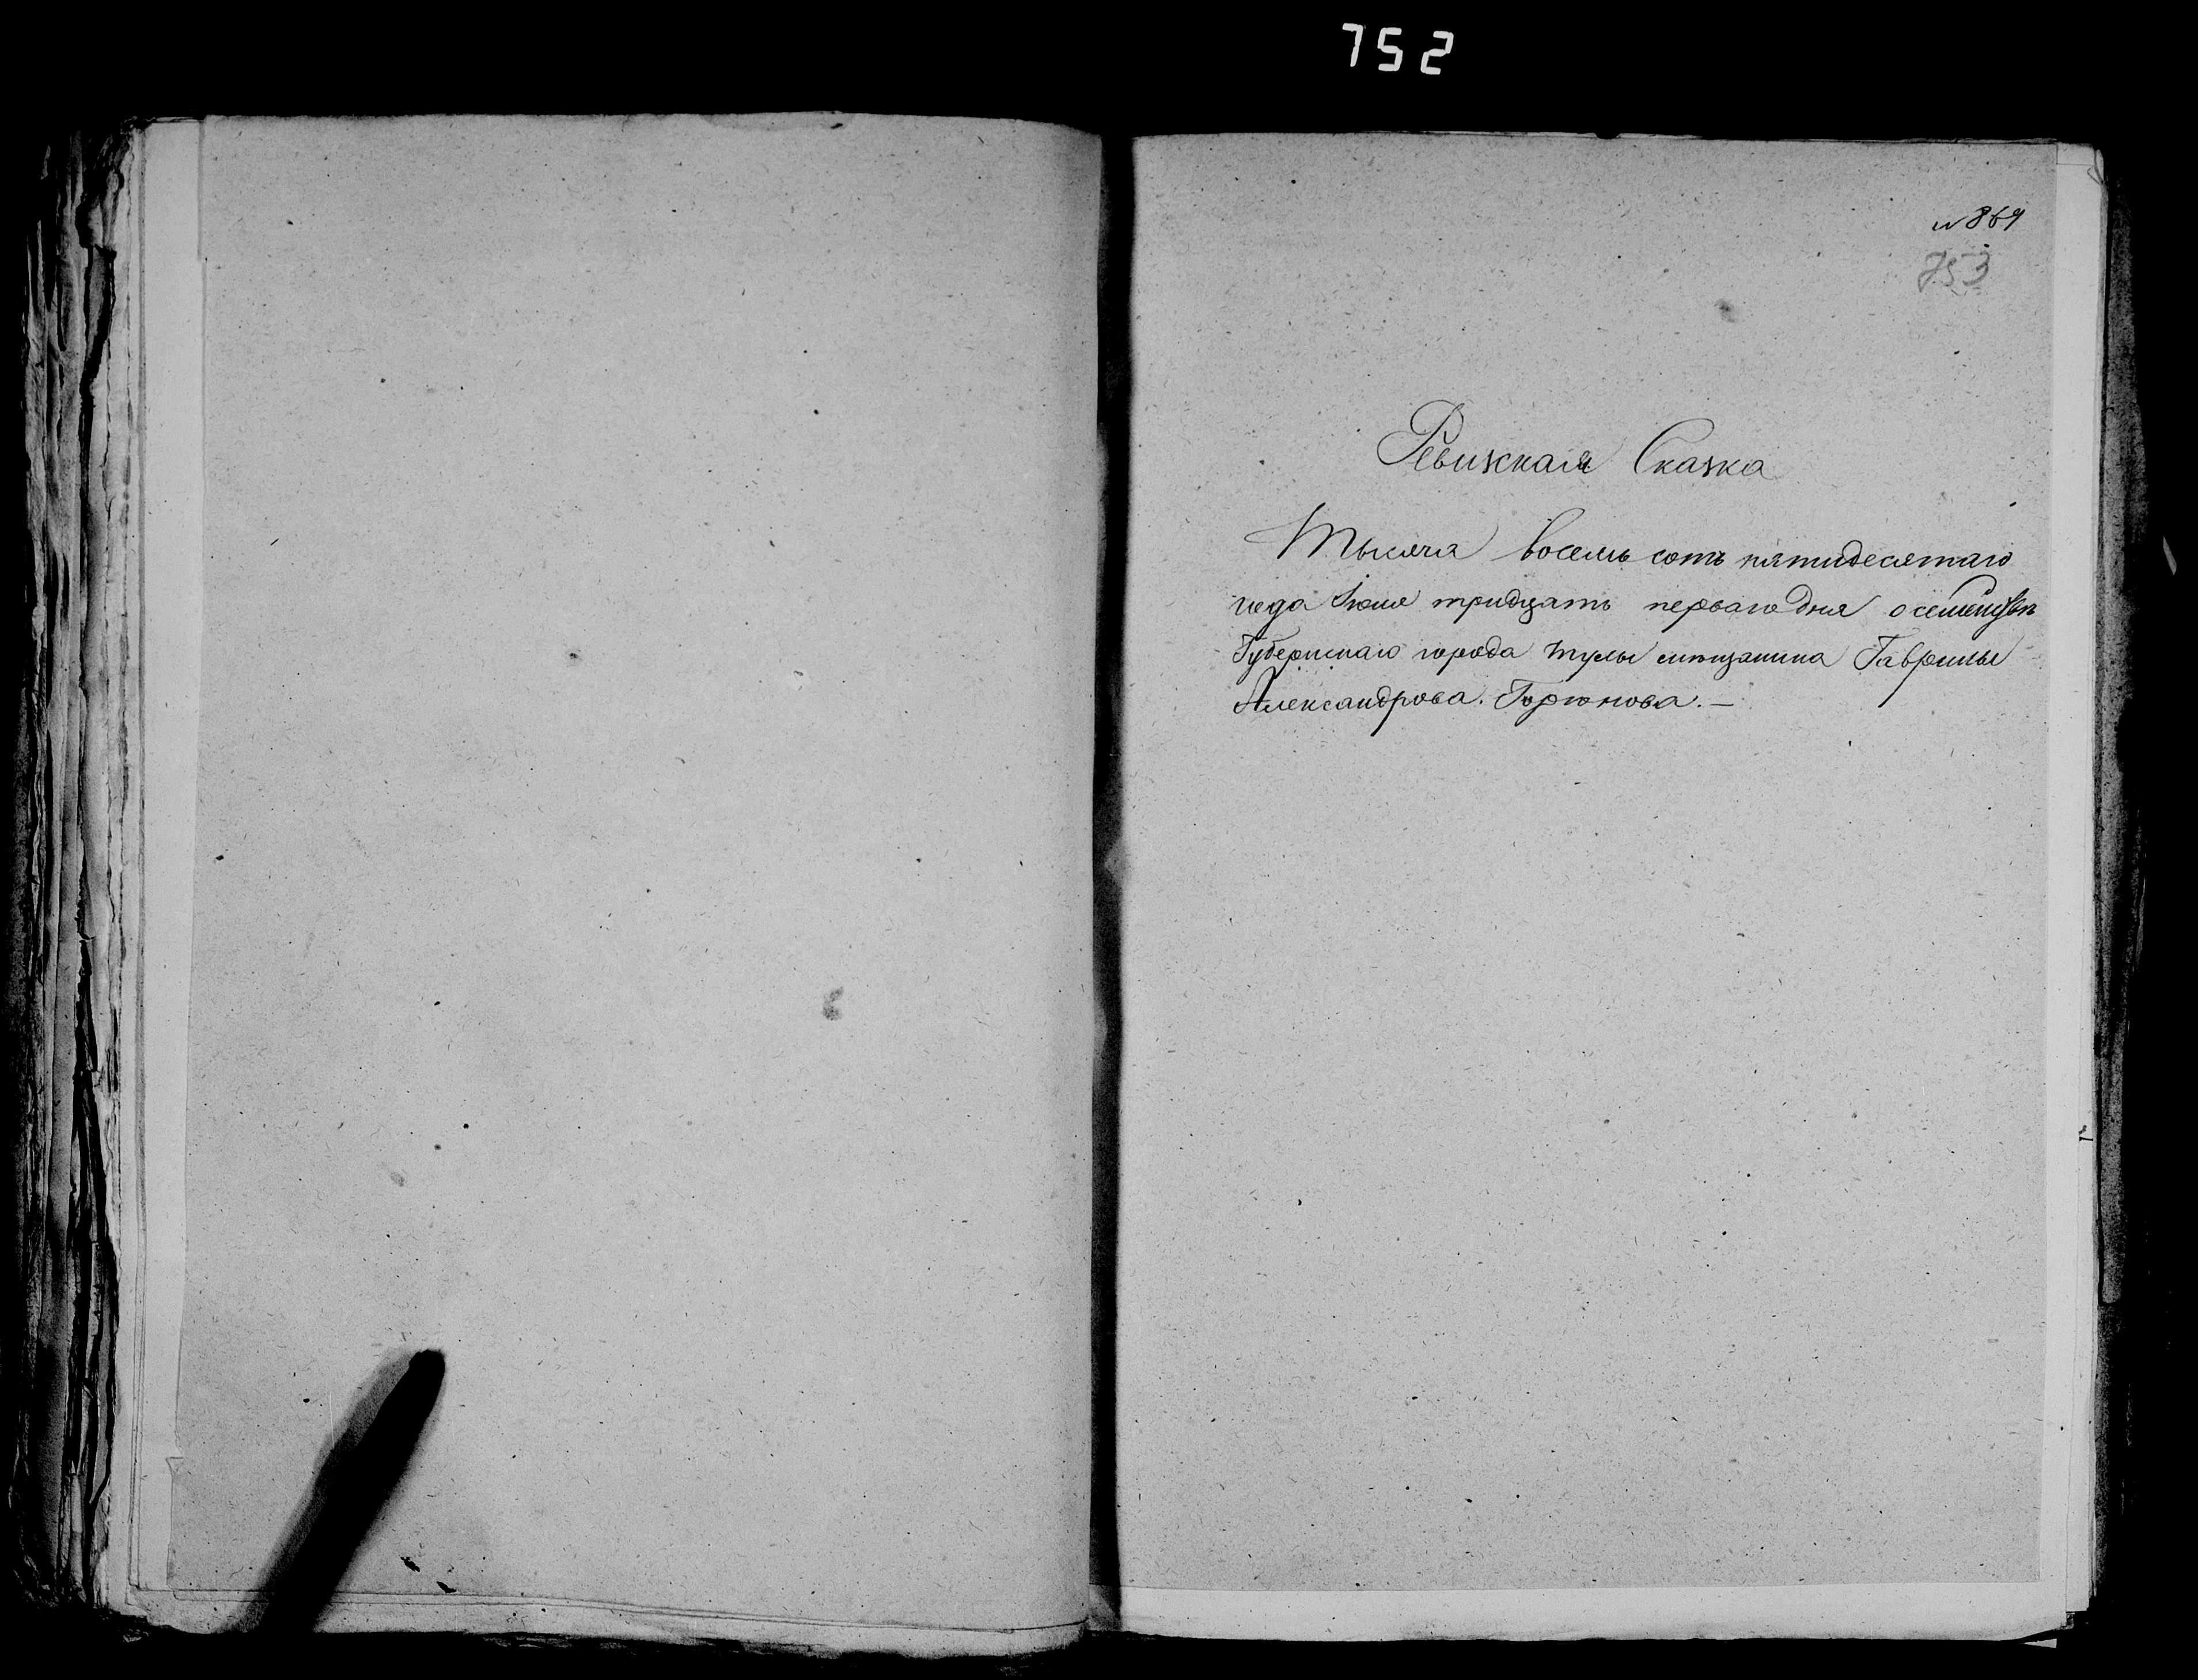 752
№ 869
753
Ревизская Сказка
Тысяча восемь сотъ пятидесятаго
года Июля тридцать перваго дня о семействѣ
Губернскаго города Тулы мѣщанина Гаврилы
Александрова. Горюнова. —